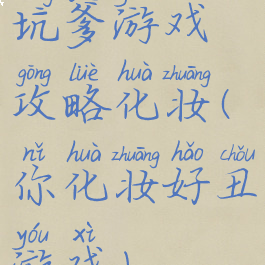 坑爹游戏
gōng lüè huà zhuāng
攻略化妆(
nǐ huà zhuāng hǎo chǒu
你化妆好丑
yóu xì
游戏)